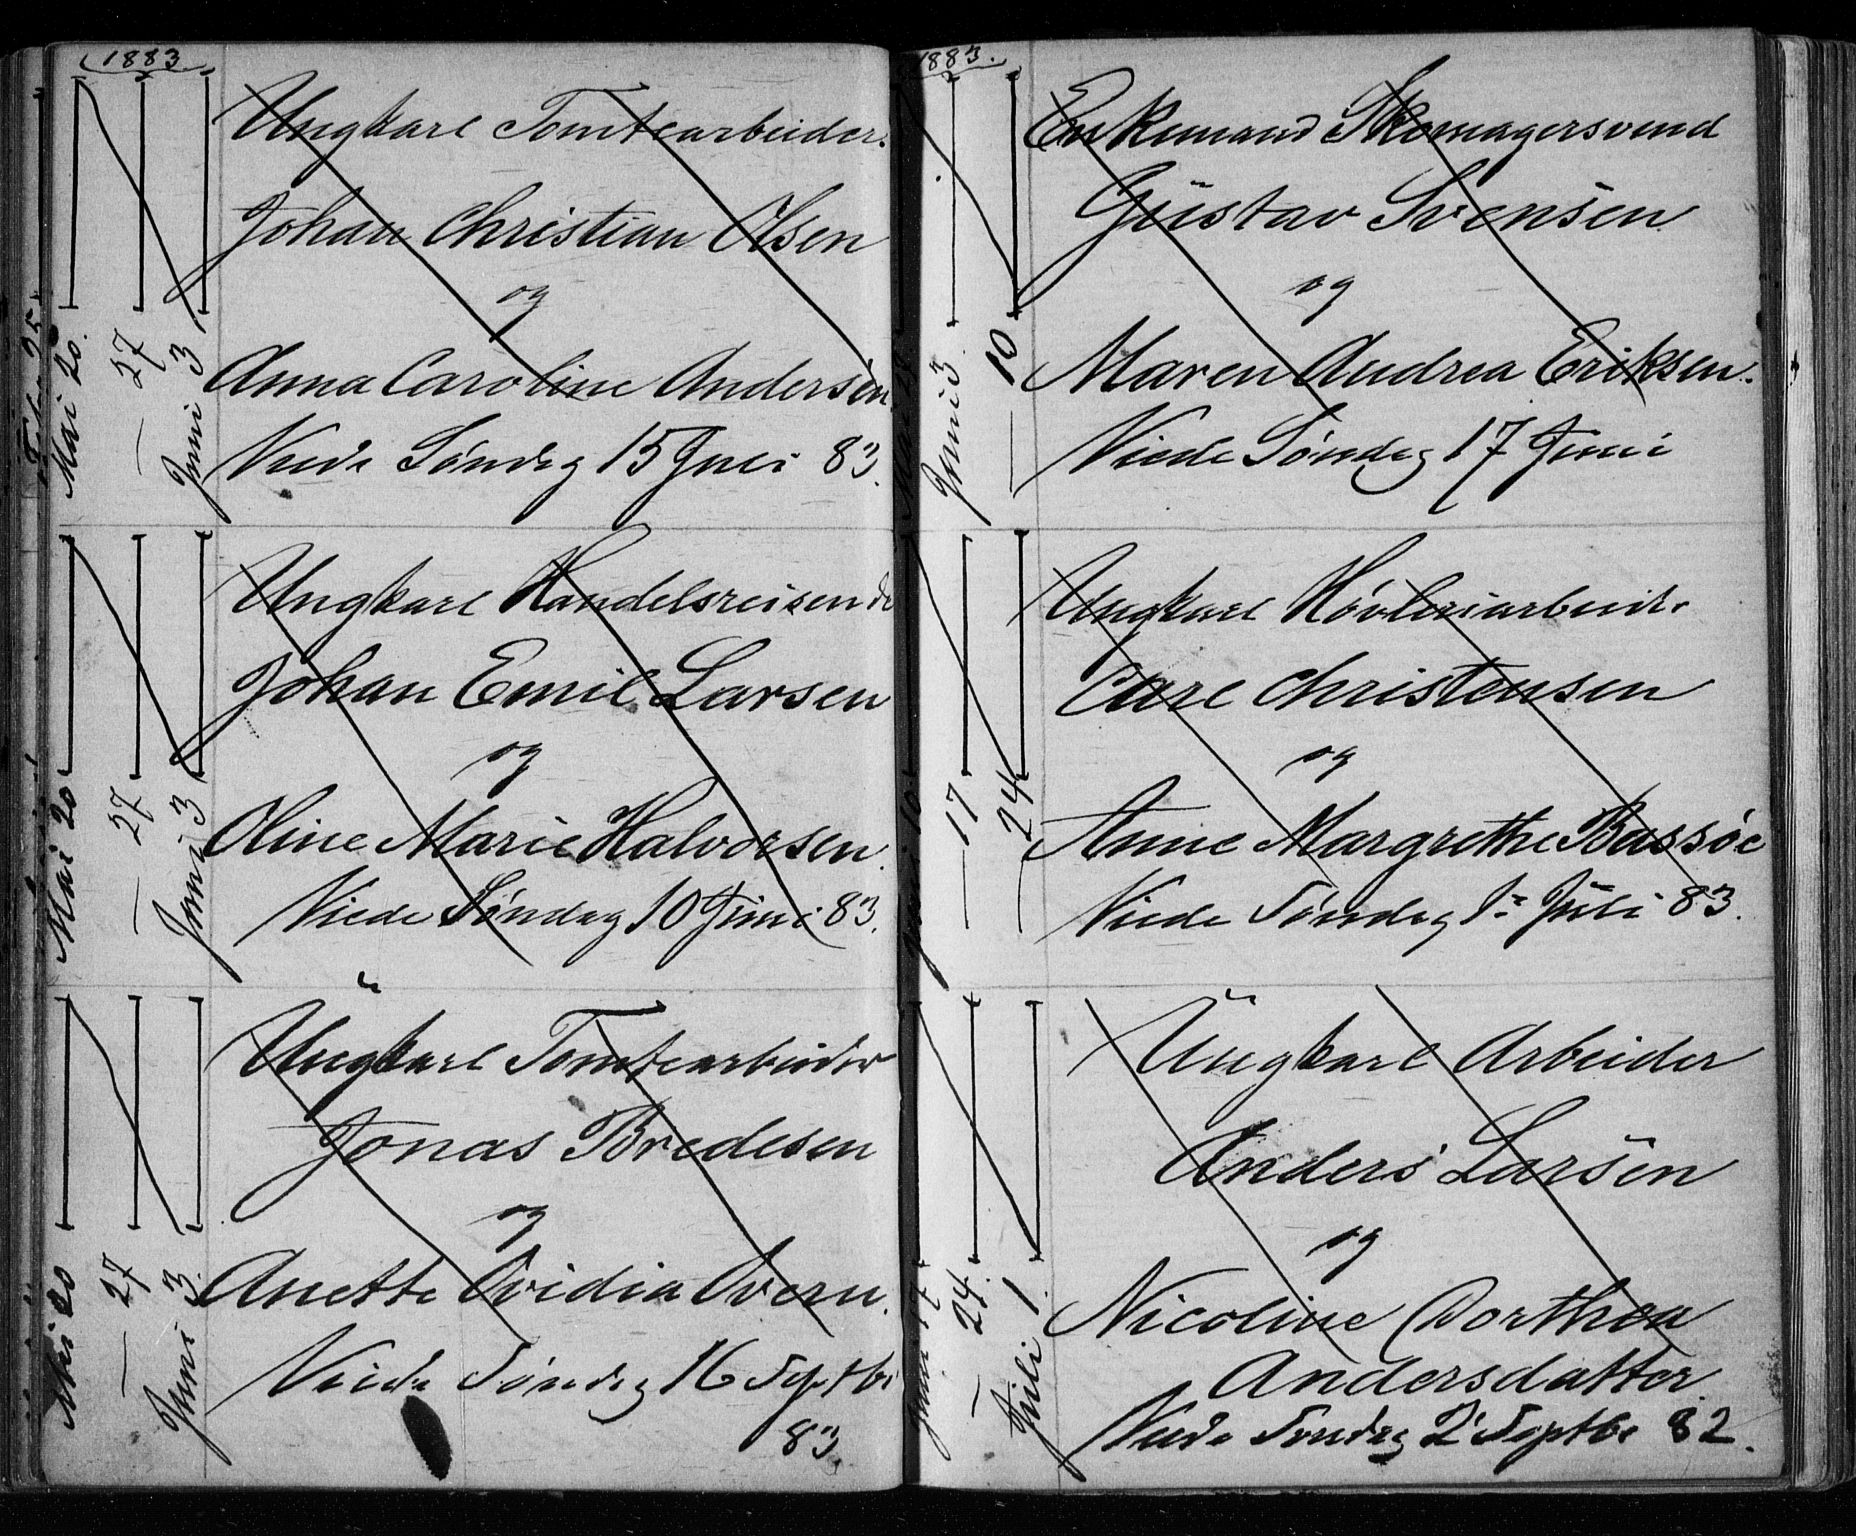 1883.
Mai 20.
— 27
Juni 3
Ungkarl Tomtearbeider.
Johan Christian Olsen
og
Anna Caroline Andersen
Viede Søndag 15 Juli 83.
Mai 20
— 27
Juni 3
Ungkarl Handelsreisende
Johan Emil Larsen
og
Oline Marie Halvorsen.
Viede Søndag 10 Juni 83.
Mai 20
— 27
Juni 3.
Ungkarl Tomtearbeider
Jonas Bredesen
og
Anette Ovidia Overn.
Viede Søndag 16 Septbr
83.
1883.
Juni 3
— 10
Enkemand Skomagersvend
Gustav Svensen
og
Maren Andrea Eriksen.
Viede Søndag 17 Juni
Juni 10
— 17
— 24
Ungkarl Høvleriarbeider
Carl Christensen
og
Anne Margrethe Bassøe
Viede Søndag 1ste Juli 83.
Juni 17
— 24.
Juli 1.
Ungkarl Arbeider
Anders Larsen
og
Nicoline Dorthea
Andersdatter.
Viede Søndag 2 Septbr 82.